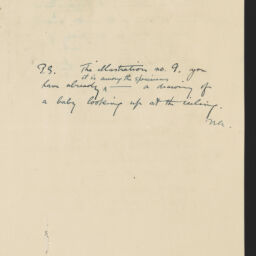 P.S. The illustration no. 9. you
it is among the specimens
have already ^ — a drawing of
a baby looking up at the ceiling.